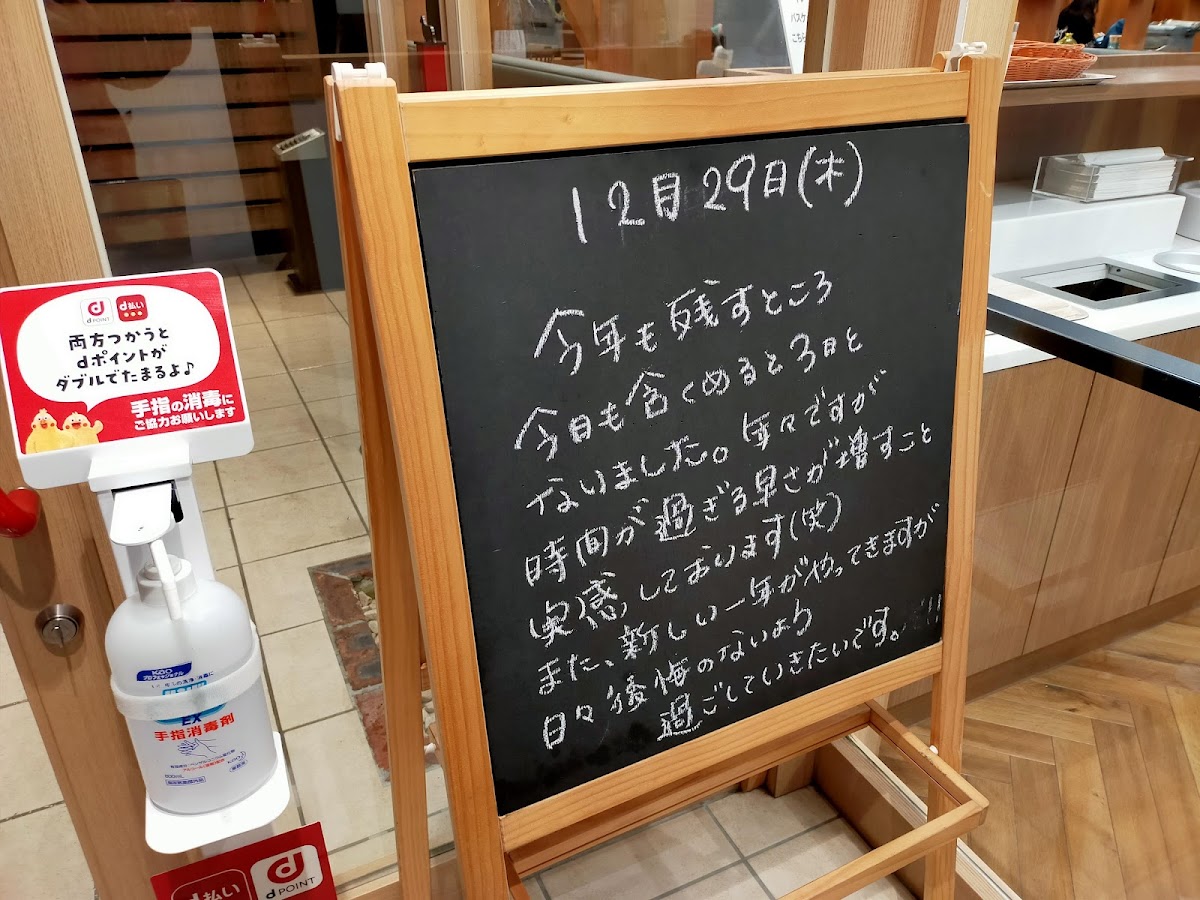 12月29日(木)
今年も残すところ
今日も含くめると3日と
なりました。年々ですが
時間が過ぎる早さが増すこと
実感しております(笑)
また、新しい一年がやってきますが
日々後悔のないよう
過ごしていきたいです。!!!
d POINT
d払い
両方つかうと
dポイントが
ダブルでたまるよ♪
手指の消毒に
ご協力お願いします
Kao
プロフェッショナル
EX
手指消毒剤
d払い
d POINT